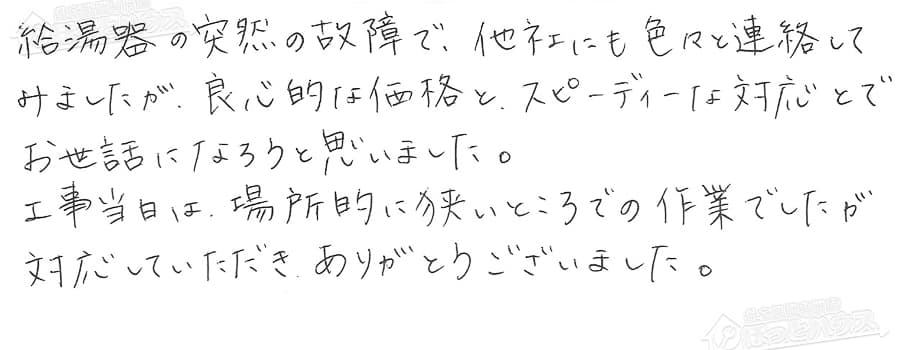 給湯器の突然の故障で、他社にも色々と連絡して
みましたが、良心的な価格と、スピーディーな対応とで
お世話になろうと思いました。
工事当日は、場所的に狭いところでの作業でしたが
対応していただき、ありがとうございました。
ほっとハウス